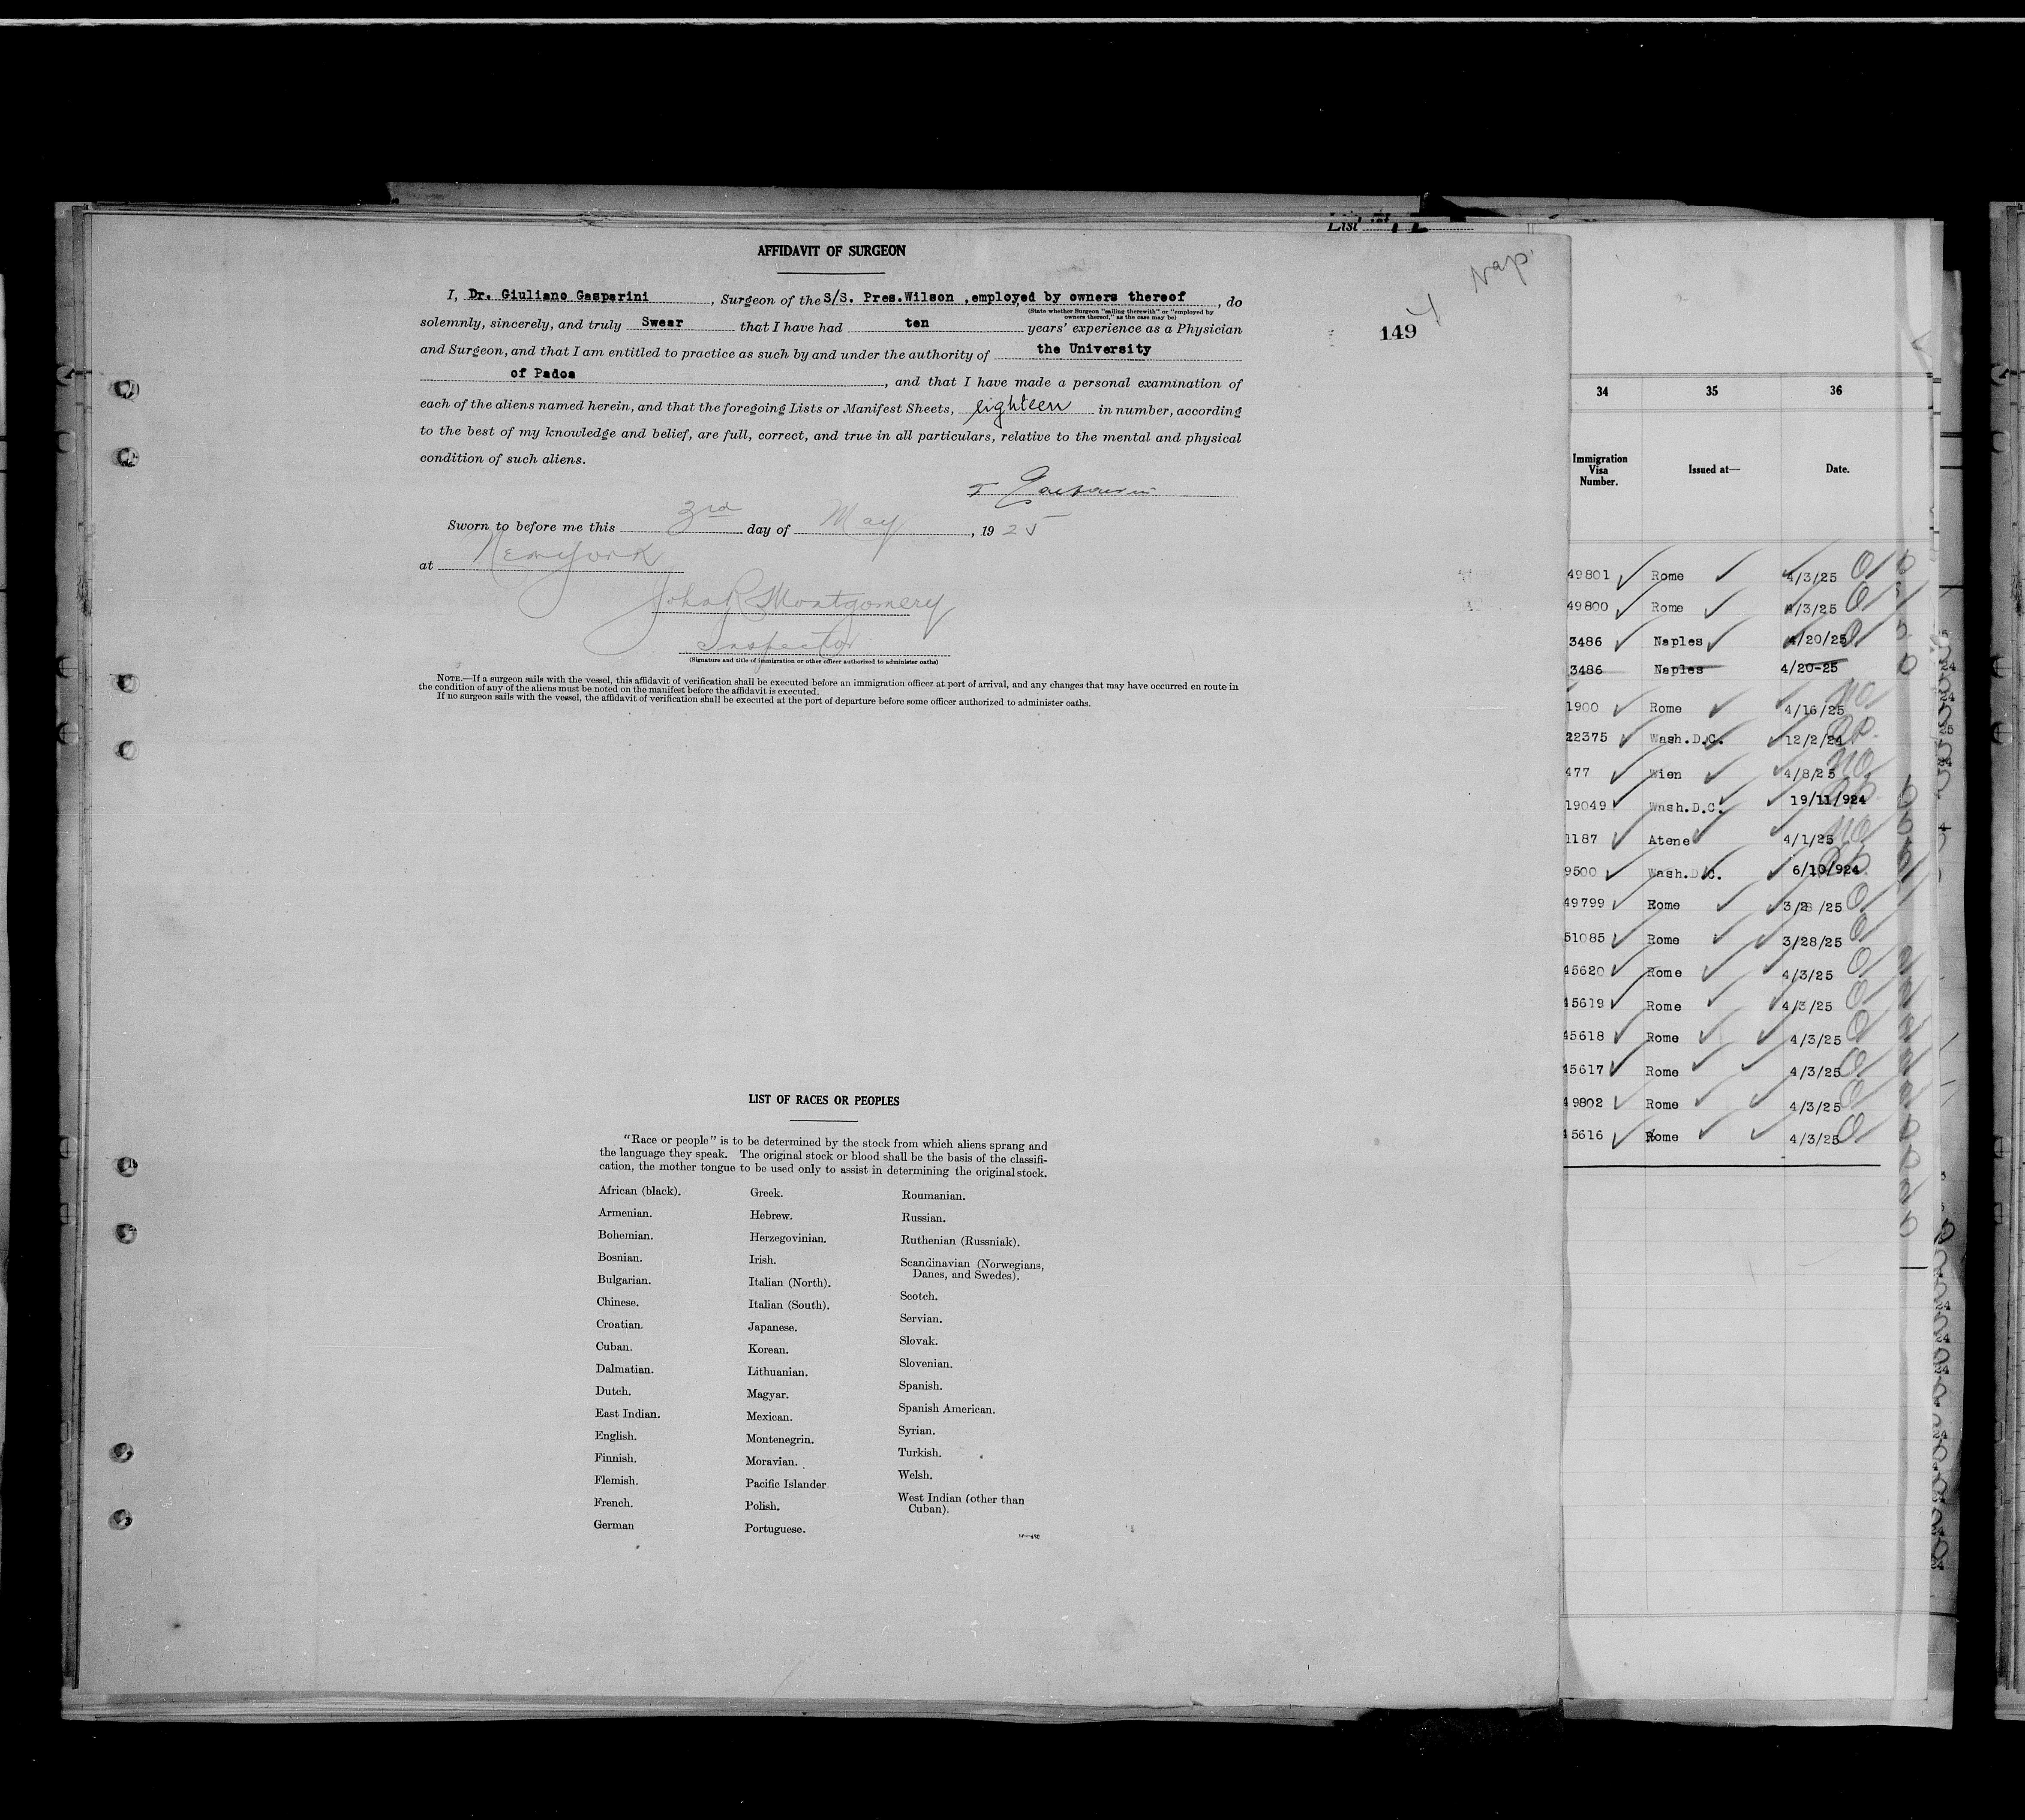 List
Nap.
149
AFFIDAVIT OF SURGEON
I, Dr. Giuliano Gasparini, Surgeon of the S/S. Pres.Wilson ,employed by owners thereof, do
(State whether Surgeon "sailing therewith" or "employed by
owners thereof," as the case may be)
solemnly, sincerely, and truly Swear that I have had ten years' experience as a Physician
and Surgeon, and that I am entitled to practice as such by and under the authority of the University
of Padoa, and that I have made a personal examination of
each of the aliens named herein, and that the foregoing Lists or Manifest Sheets, eighteen in number, according
to the best of my knowledge and belief, are full, correct, and true in all particulars, relative to the mental and physical
condition of such aliens.
Gasparini
Sworn to before me this 3rd day of May, 1925
at New York
John R Montgomery
Inspector
(Signature and title of immigration or other officer authorized to administer oaths)
NOTE.—If a surgeon sails with the vessel, this affidavit of verification shall be executed before an immigration officer at port of arrival, and any changes that may have occurred en route in
the condition of any of the aliens must be noted on the manifest before the affidavit is executed.
If no surgeon sails with the vessel, the affidavit of verification shall be executed at the port of departure before some officer authorized to administer oaths.
LIST OF RACES OR PEOPLES
"Race or people" is to be determined by the stock from which aliens sprang and
the language they speak. The original stock or blood shall be the basis of the classifi-
cation, the mother tongue to be used only to assist in determining the original stock.
African (black).
Armenian.
Bohemian.
Bosnian.
Bulgarian.
Chinese.
Croatian.
Cuban.
Dalmatian.
Dutch.
East Indian.
English.
Finnish.
Flemish.
French.
German
Greek.
Hebrew.
Herzegovinian.
Irish.
Italian (North).
Italian (South).
Japanese.
Korean.
Lithuanian.
Magyar.
Mexican.
Montenegrin.
Moravian.
Pacific Islander
Polish.
Portuguese.
Roumanian.
Russian.
Ruthenian (Russniak).
Scandinavian (Norwegians,
Danes, and Swedes).
Scotch.
Servian.
Slovak.
Slovenian.
Spanish.
Spanish American.
Syrian.
Turkish.
Welsh.
West Indian (other than
Cuban).
34 35 36
Immigration Visa Number. Issued at— Date.
49801 Rome 4/3/25
49800 Rome 4/3/25
3486 Naples 4/20/25
3486 Naples 4/20-25
1900 Rome 4/16/25
22375 Wash.D.C. 12/2/24
477 Wien 4/8/25
19049 Wash.D.C. 19/11/924
1187 Atene 4/1/25
9500 Wash.D.C. 6/10/924
49799 Rome 3/28/25
51085 Rome 3/28/25
45620 Rome 4/3/25
45619 Rome 4/3/25
45618 Rome 4/3/25
45617 Rome 4/3/25
49802 Rome 4/3/25
45616 Rome 4/3/25